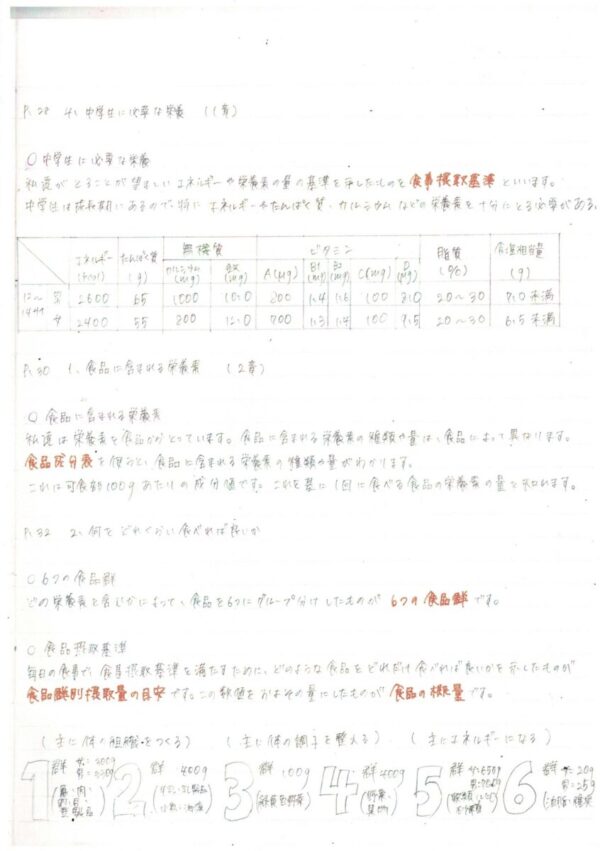 P.28 4、中学生に必要な栄養 (1章)
○中学生に必要な栄養
私達がとることが望ましいエネルギーや栄養素の量の基準を示したものを食事摂取基準といいます。
中学生は成長期にあるので特にエネルギーやたんぱく質・カルシウムなどの栄養素を十分にとる必要がある。
エネルギー (kcal) たんぱく質 (g) 無機質 ビタミン 脂質 (%) 食塩相当量 (g)
カルシウム (mg) 鉄 (mg) A(μg) B1 (mg) B2 (mg) C(mg) D (μg)
12〜14才 男 2600 65 1000 10.0 800 1.4 1.6 100 8.0 20〜30 7.0未満
女 2400 55 800 12.0 700 1.3 1.4 100 20〜30 6.5未満
P.30 1、食品に含まれる栄養素 (2章)
○食品に含まれる栄養素
私達は栄養素を食品からとっています。食品に含まれる栄養素の種類や量は、食品によって異なります。
食品成分表を使うと、食品に含まれる栄養素の種類や量がわかります。
これは可食部100gあたりの成分値です。これを基に1回に食べる食品の栄養素の量を知れます。
P.32 2、何をどれくらい食べれば良いか
○6つの食品群
どの栄養素を含むかによって、食品を6つにグループ分けしたものが6つの食品群です。
○食品摂取基準
毎日の食事で、食事摂取基準を満たすために、どのような食品をどれだけ食べれば良いかを示したものが
食品群別摂取量の目安です。この数値をおよその量にしたものが食品の概量です。
(主に体の組織をつくる) (主に体の調子を整える) (主にエネルギーになる)
1群 2群 400g 3群 100g 4群 400g 5群 6群 女=20g 男=25g
(緑黄色野菜) (油脂・種実)